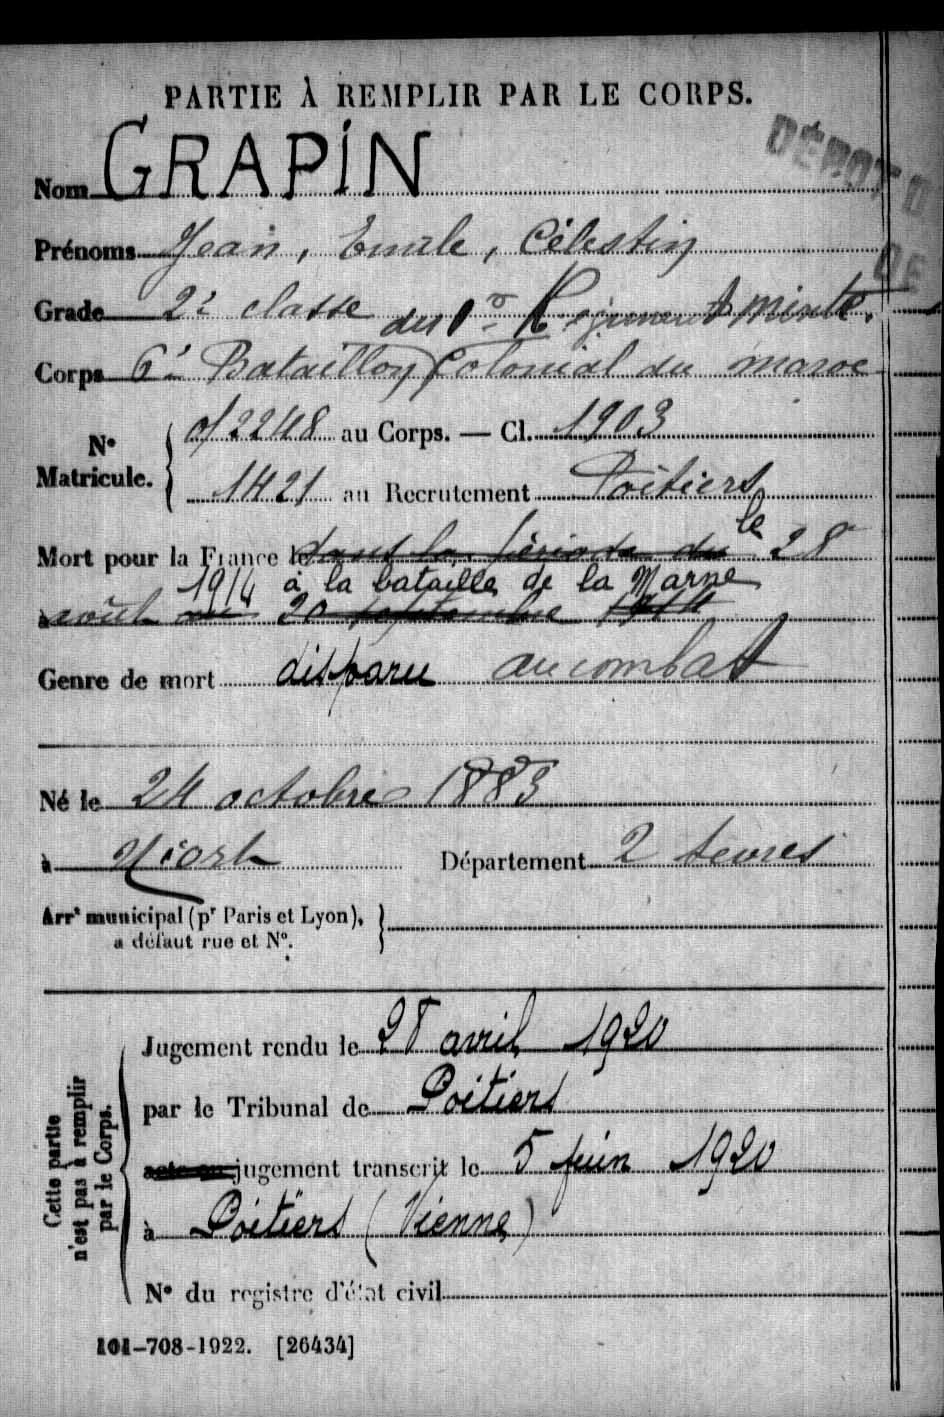 PARTIE À REMPLIR PAR LE CORPS.
DÉPOT D
DE
Nom GRAPIN
Prénoms Jean, Emile, Célestin
Grade 2e classe du 1er Régiment Mixte.
Corps 6e Bataillon Colonial du maroc
No Matricule. { 0/2248 au Corps. — Cl. 1903
1421 au Recrutement Poitiers
Mort pour la France le dans la période du le 28
1914 à la bataille de la Marne
août au 20 septembre 1914
Genre de mort disparu au combat
Né le 24 octobre 1883
à Niort Département 2 sevres
Arrt municipal (pr Paris et Lyon),
a défaut rue et No. }
Cette partie
n'est pas à remplir
par le Corps.
Jugement rendu le 28 avril 1920
par le Tribunal de Poitiers
acte ou jugement transcrit le 5 juin 1920
à Poitiers (Vienne)
No du registre d'état civil
101-708-1922. [26434]